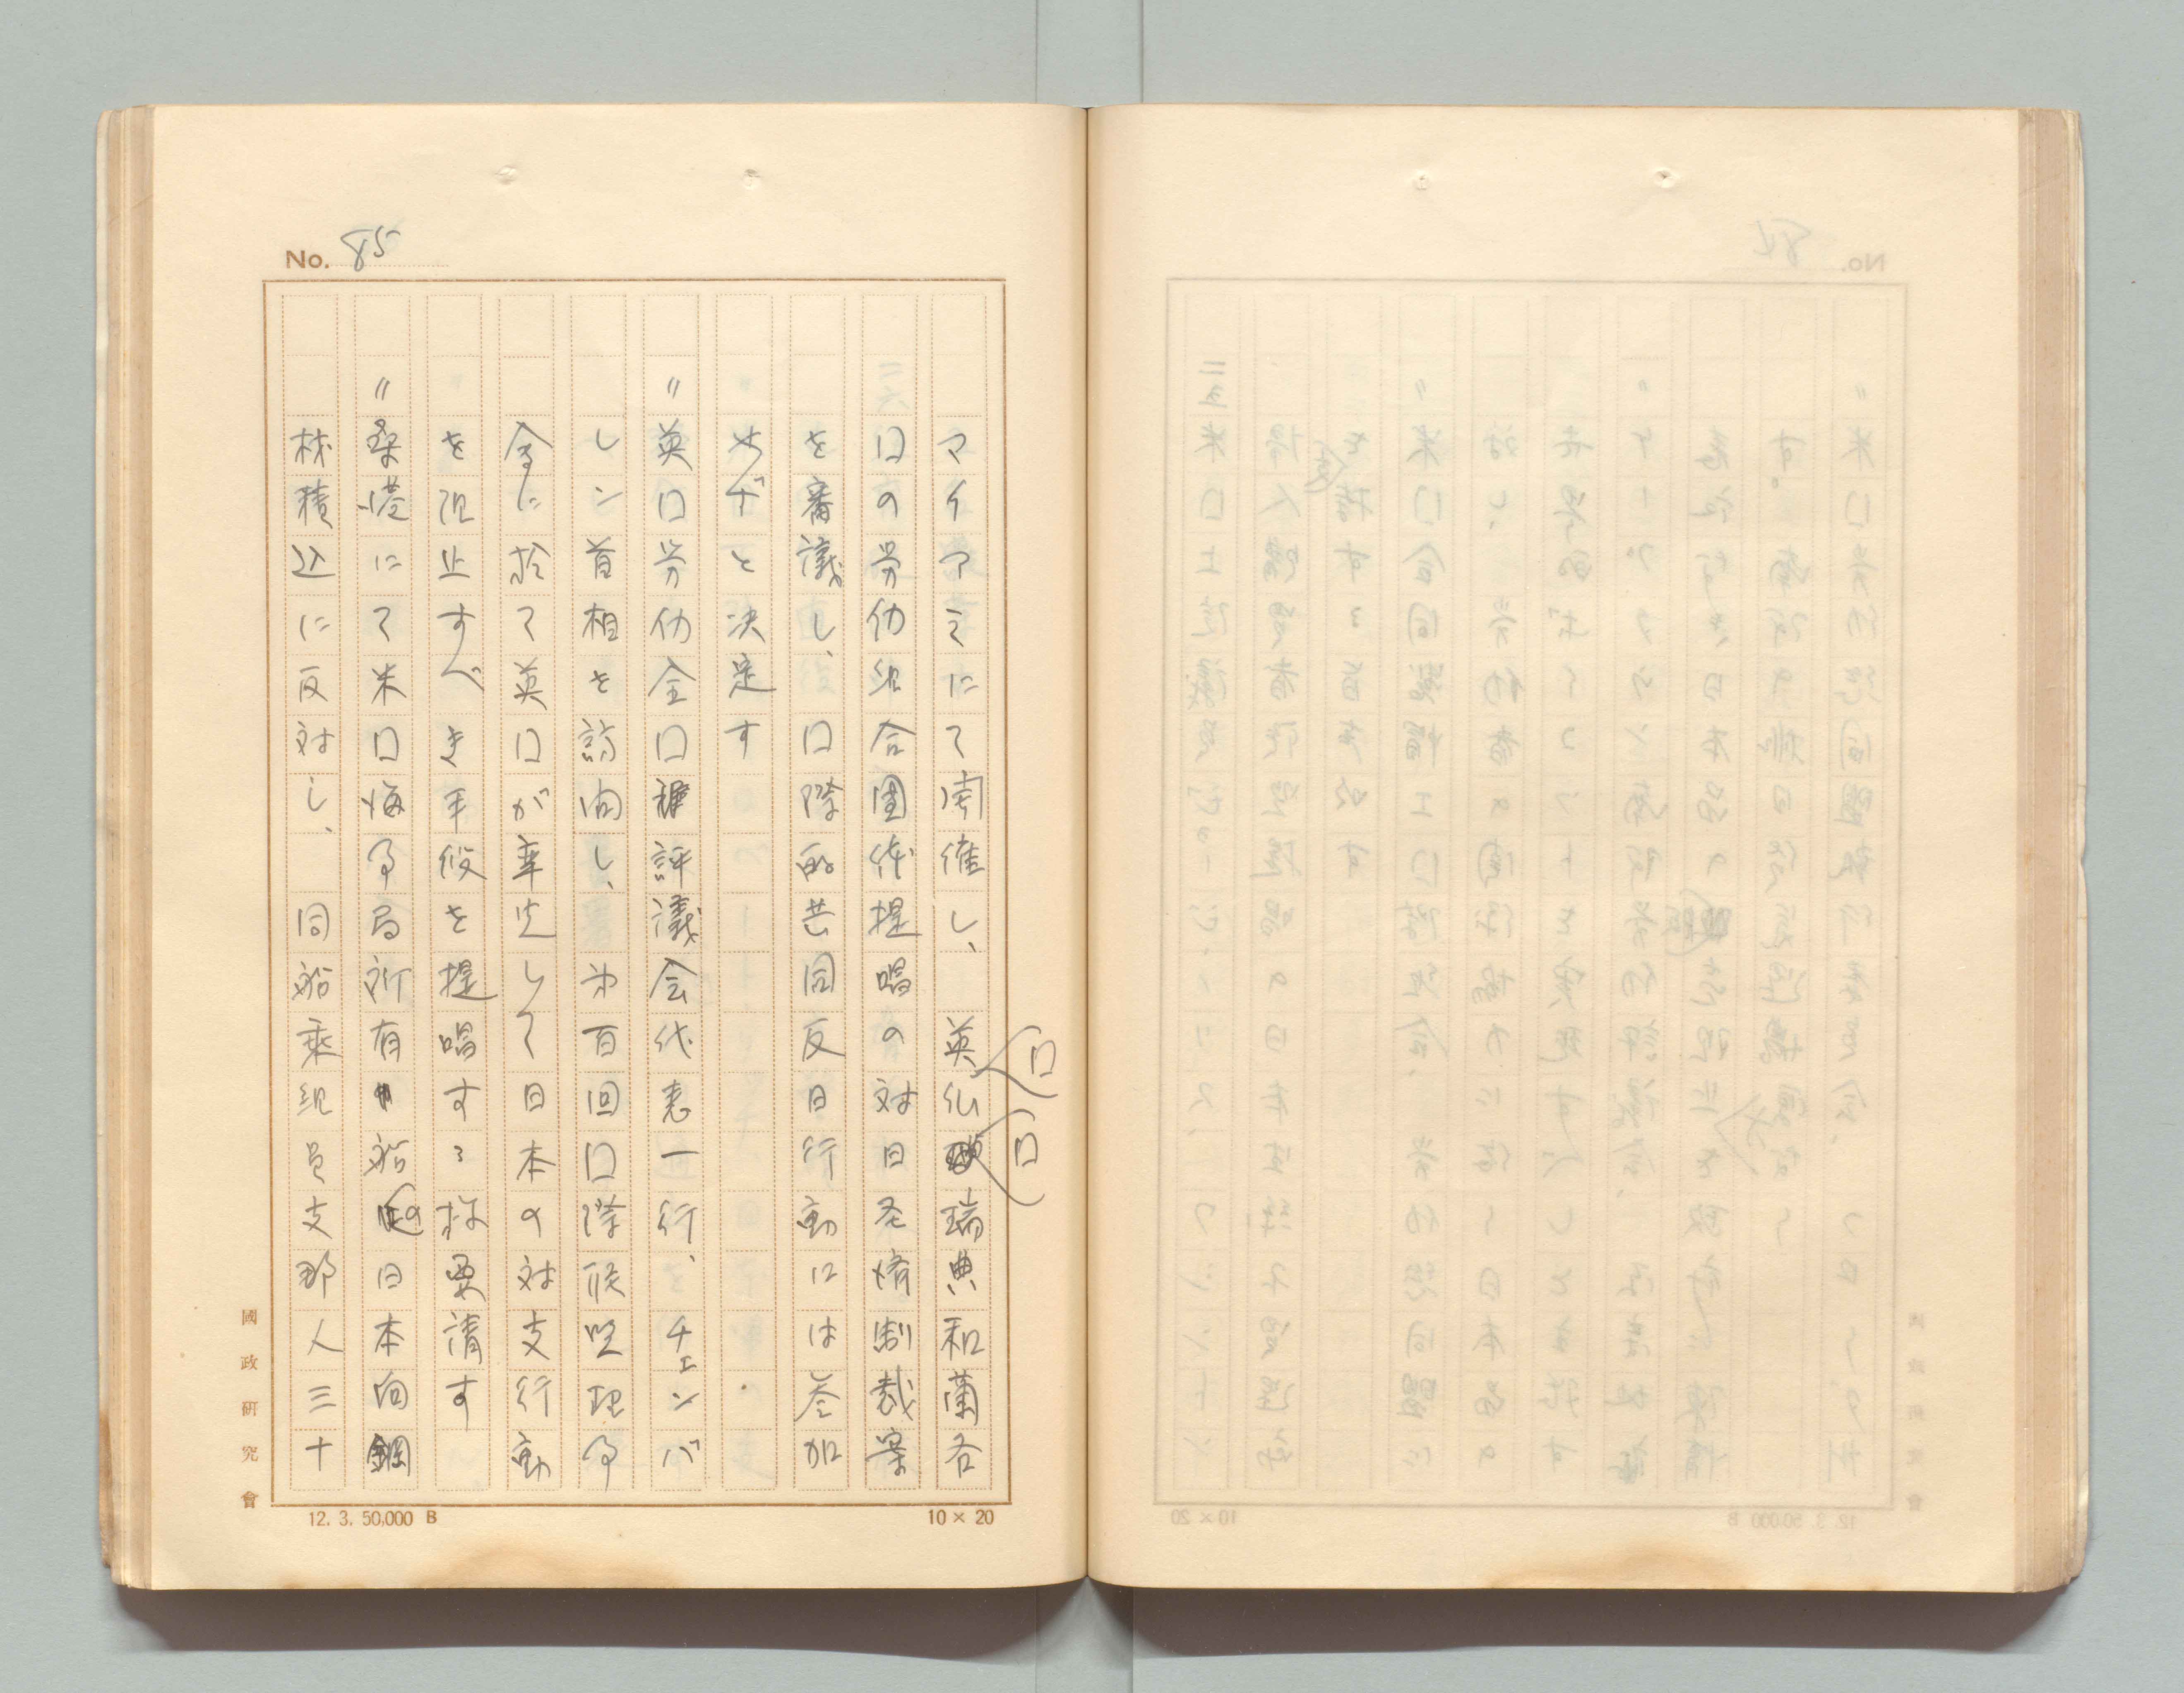 No. 85
マイアミにて開催し、英口仏口瑞典和蘭各
口の労仂組合団体提唱の対日圣済制裁案
を審議し、口際的共同反日行動には参加
せずと決定す
〃英口労仂全口評議会代表一行、チェンバ
レン首相を訪問し、第百回口際聯盟理事
会に於て英口が率先して日本の対支行動
を阻止すべき手段を提唱する様要請す
〃桑港にて米口海事局所有船の日本向鋼
材積込に反対し、同船乗組員支那人三十
國政研究會
12. 3. 50,000 B
10×20